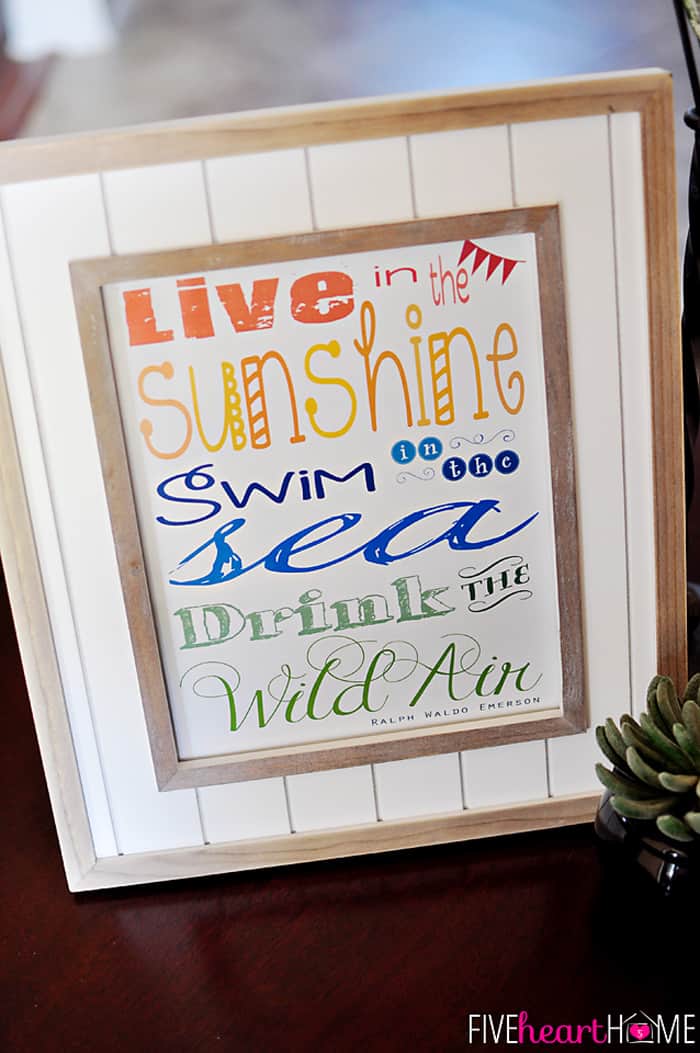 Live in the
sunshine
SWiM in the
sea
Drink THE
Wild Air
RALPH WALDO EMERSON
FIVEheartHOME
5